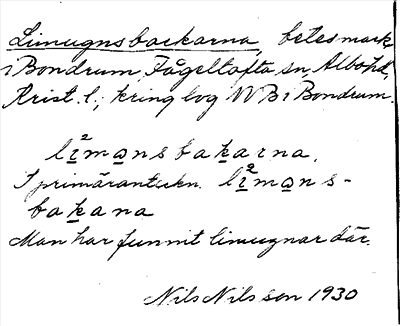 Limugnsbackarna, betesmark
i Bondrum, Fågeltofta sn, Albo hd,
Krist. l.; kring byg NV B i Bondrum.
li̱²mo̱nsbaka̱rna.
I primäranteckn. li̱²mo̱ns-
baka̱na
Man har funnit limugnar där.
Nils Nilsson 1930